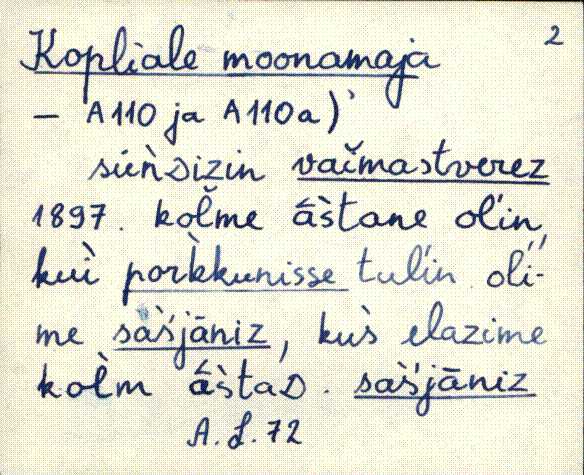 2
Kopliale moonamaja
– A110 ja A110a)
siǹdizin vačmastverez
1897. kol̆me ā̀štane ol'in,
kui porkkunisse tul'in oli-
me sàšjāniz, kus̀ elazime
kol̀m ā̀štad. sàšjāniz
A.L. 72